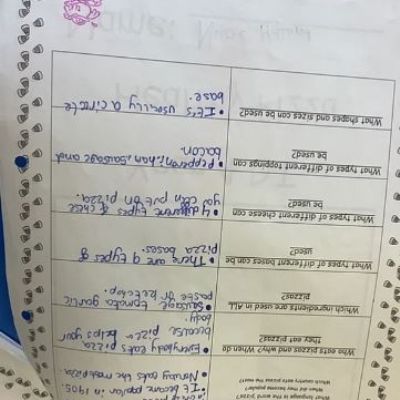 What is language the word pizza?
When did they become popular?
Which country eats pizza the most?
• It became popular in 1905.
• Norway eats the most pizza.
Who eats pizzas and why? When do
they eat pizza?
• Everybody eats pizza
because pizza helps your
body.
Which ingredients are used in ALL
pizzas?
garlic
paste or
What types of different bases can be
used?
• There are 9 types of
pizza bases.
What types of different cheese can
be used?
• 4 different types of
you can put on pizza.
What types of different toppings can
be used?
• Pepperoni, ham, sausage and
bacon
What shapes and sizes can be used?
• It's usually a circle
base.